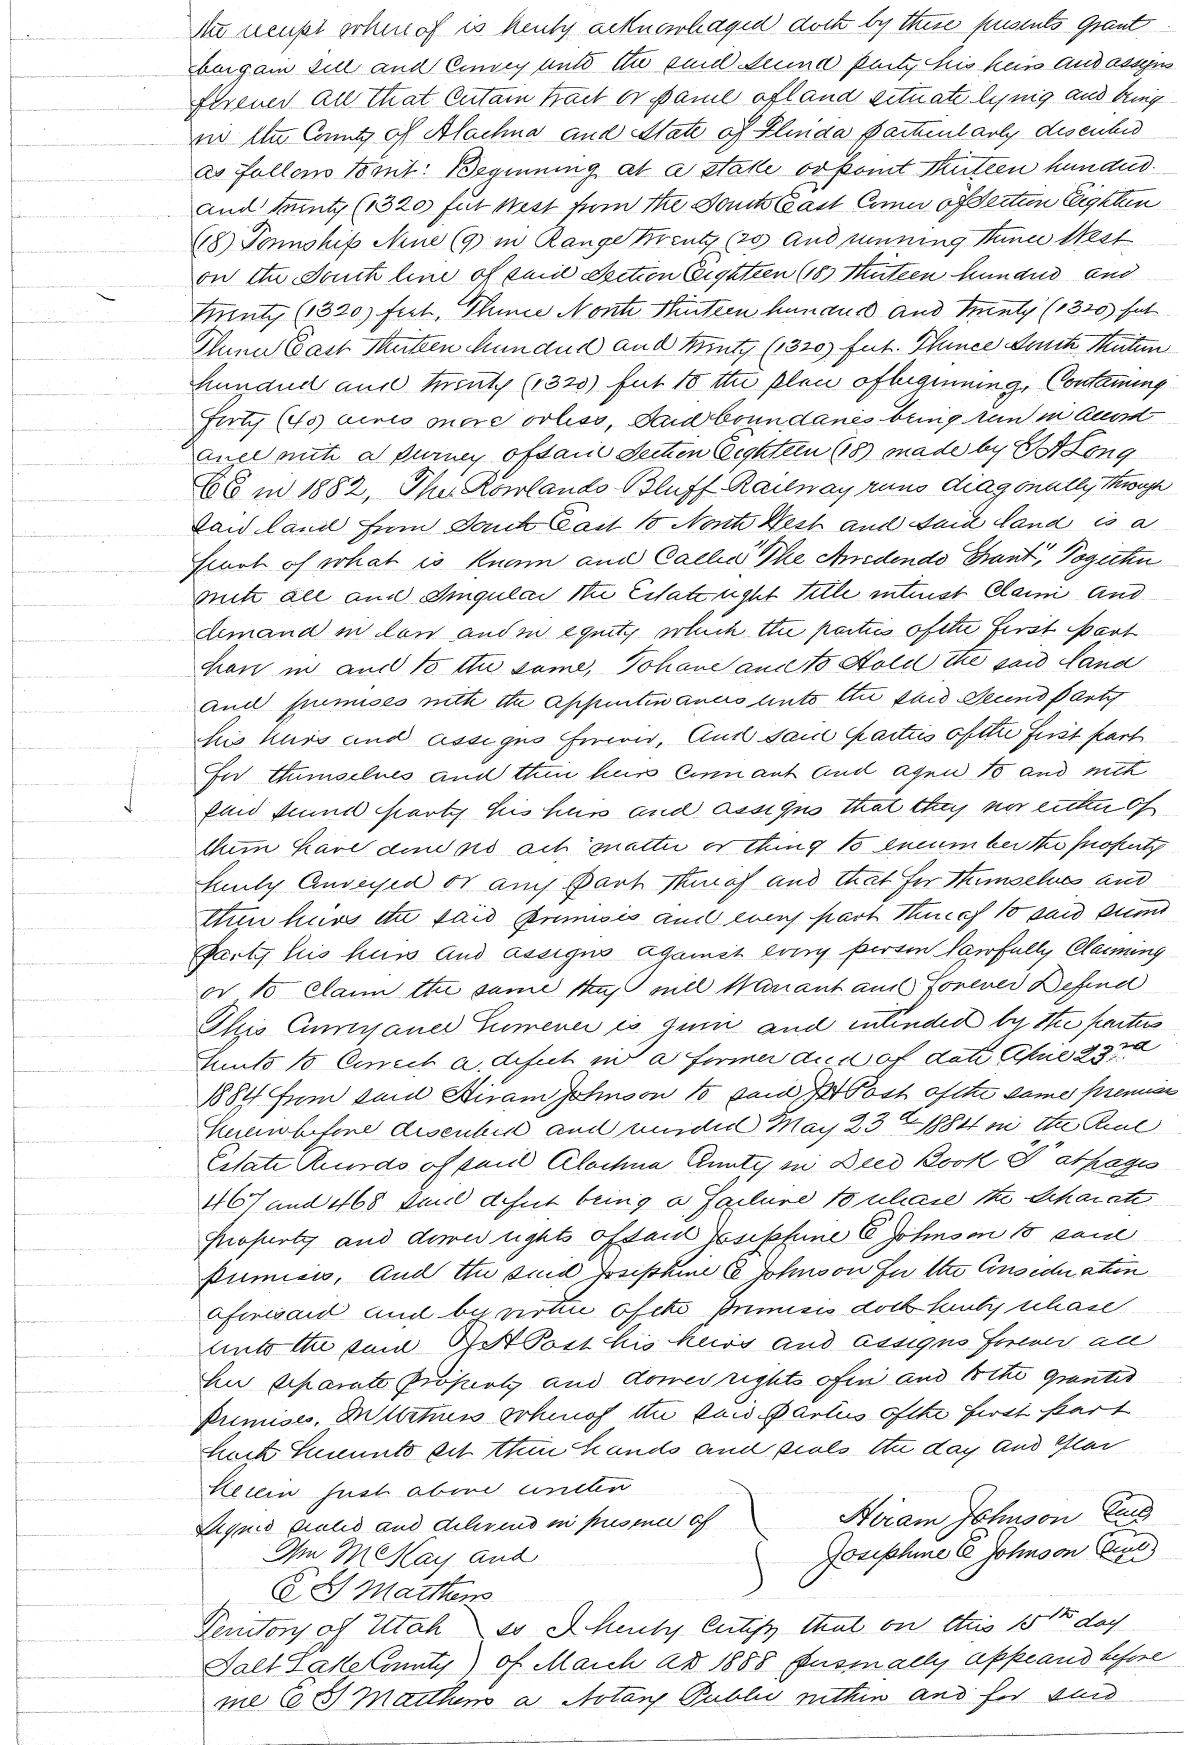 the receipt whereof is hereby acknowledged doth by these presents grant
bargain sell and Convey unto the said second party his heirs and assigns
forever all that Certain tract or parcel of land situate lying and being
in the County of Alachua and State of Florida particularly described
as follows towit: Beginning at a stake or point thirteen hundred
and twenty (1320) feet West from the South East Corner of Section Eighteen
(18) Township Nine (9) in Range twenty (20) and running thence West
on the South line of said Section Eighteen (18) thirteen hundred and
twenty (1320) feet, Thence North thirteen hundred and twenty (1320) feet
Thence East thirteen hundred and twenty (1320) feet. Thence South thirteen
hundred and twenty (1320) feet to the place of beginning, Containing
forty (40) acres more or less, Said boundaries being run in accord
ance with a survey of said Section Eighteen (18) made by Long
CE in 1882, The Rowlands Bluff Railway runs diagonally through
said land from South East to North West and said land is a
part of what is known and Called "The Arredondo Grant", Together
with all and Singular the Estate right title interest Claim and
demand in law and in equity which the parties of the first part
have in and to the same, To have and to Hold the said land
and premises with the appurtenances unto the said Second party
his heirs and assigns forever, And said parties of the first part
for themselves and their heirs Covenant and agree to and with
said second party his heirs and assigns that they nor either of
them have done no act matter or thing to encumber the property
hereby Conveyed or any part thereof and that for themselves and
their heirs the said premises and every part thereof to said second
party his heirs and assigns against every person lawfully Claiming
or to Claim the same they will Warrant and forever Defend
This Conveyance however is given and intended by the parties
hereto to Correct a defect in a former deed of date April 23rd
1884 from said Hiram Johnson to said Post of the same premises
hereinbefore described and recorded May 23d 1884 in the Real
Estate Records of said Alachua County in Deed Book at pages
467 and 468 said defect being a failure to release the separate
property and dower rights of said Josephine E Johnson to said
premises, And the said Josephine E Johnson for the Consideration
aforesaid and by virtue of the premises doth hereby release
unto the said Post his heirs and assigns forever all
her separate property and dower rights of in and to the granted
premises. In Witness whereof the said parties of the first part
have hereunto set their hands and seals the day and year
herein just above written
Signed sealed and delivered in presence of Hiram Johnson Seal
Wm McKay and Josephine E Johnson Seal
E G Matthews
Territory of Utah ss I hereby Certify that on this 15th day
Salt Lake County) of March AD 1888 personally appeared before
me E G Matthews a Notary Public within and for said